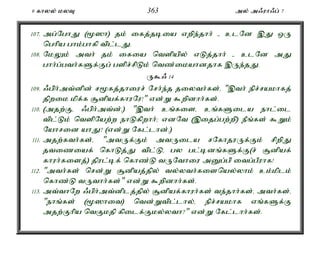 9 காலல் மலவு 363 அல் அஃராஃப் 7
107. அப்போது (மூஸா) தம் கைத்தடியை எறிந்தார் . உடனே இது ஒரு
பெரிய பாம்பாகி விட்டது.
108. மேலும் அவர் தம் கையை வெளியில் எடுத்தார் . உடனே அது
பார்ப்பவர்களுக்குப் பளிச்சிடும் வெண்மையானதாக இருந்தது.
ருகூஃ 14
109. ஃபிர்அவ்னின் சமூகத்தாரைச் சேர்ந்த தலைவர்கள், "இவர் நிச்சயமாகத்
திறமை மிக்க சூனியக்காரரே!" என்று கூறினார்கள்.
110. (அதற்கு, ஃபிர்அவ்ன்,) "இவர் உங்களை, உங்களுடைய நாட்டை
விட்டும் வெளியேற்ற நாடுகிறார்; எனவே (இதைப்பற்றி) நீங்கள் கூறும்
யோசனை யாது? (என்று கேட்டான்.)
111. அதற்கவர்கள், "அவருக்கும் அவருடைய சகோதரருக்கும் சிறிது
தவணையைக் கொடுத்து விட்டு, பல பட்டினங்களுக்கு(ச் சூனியக்
காரர்களைத்) திரட்டிக் கொண்டு வருவோரை அனுப்பி வைப்பீராக!
112. "அவர்கள் சென்று சூனியத்தில் வல்லவர்களையெல்லாம் உம்மிடம்
கொண்டு வருவார்கள்" என்று கூறினார்கள்.
113. அவ்வாறே ஃபிர்அவ்னிடத்தில் சூனியக்காரர்கள் வந்தார்கள். அவர்கள்,
"நாங்கள் (மூஸாவை) வென்றுவிட்டால், நிச்சயமாக எங்களுக்கு
அதற்குரிய வெகுமதி கிடைக்குமல்லவா?" என்று கேட்டார்கள்.